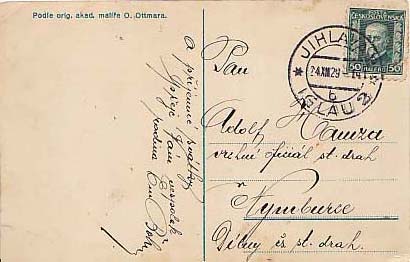 Podle orig. akad. malíře O. Ottmara.
A příjemné svátky
přeje Vám
rodina
JIHLAVA 2
24.XII.29-14
b
IGLAU 2
ČESKOSLOVENSKO
50 HALÉŘŮ 50
Pan
Adolf Hamza
vrchní oficiál st. drah
v
Nymburce
Dílny čs st. drah.